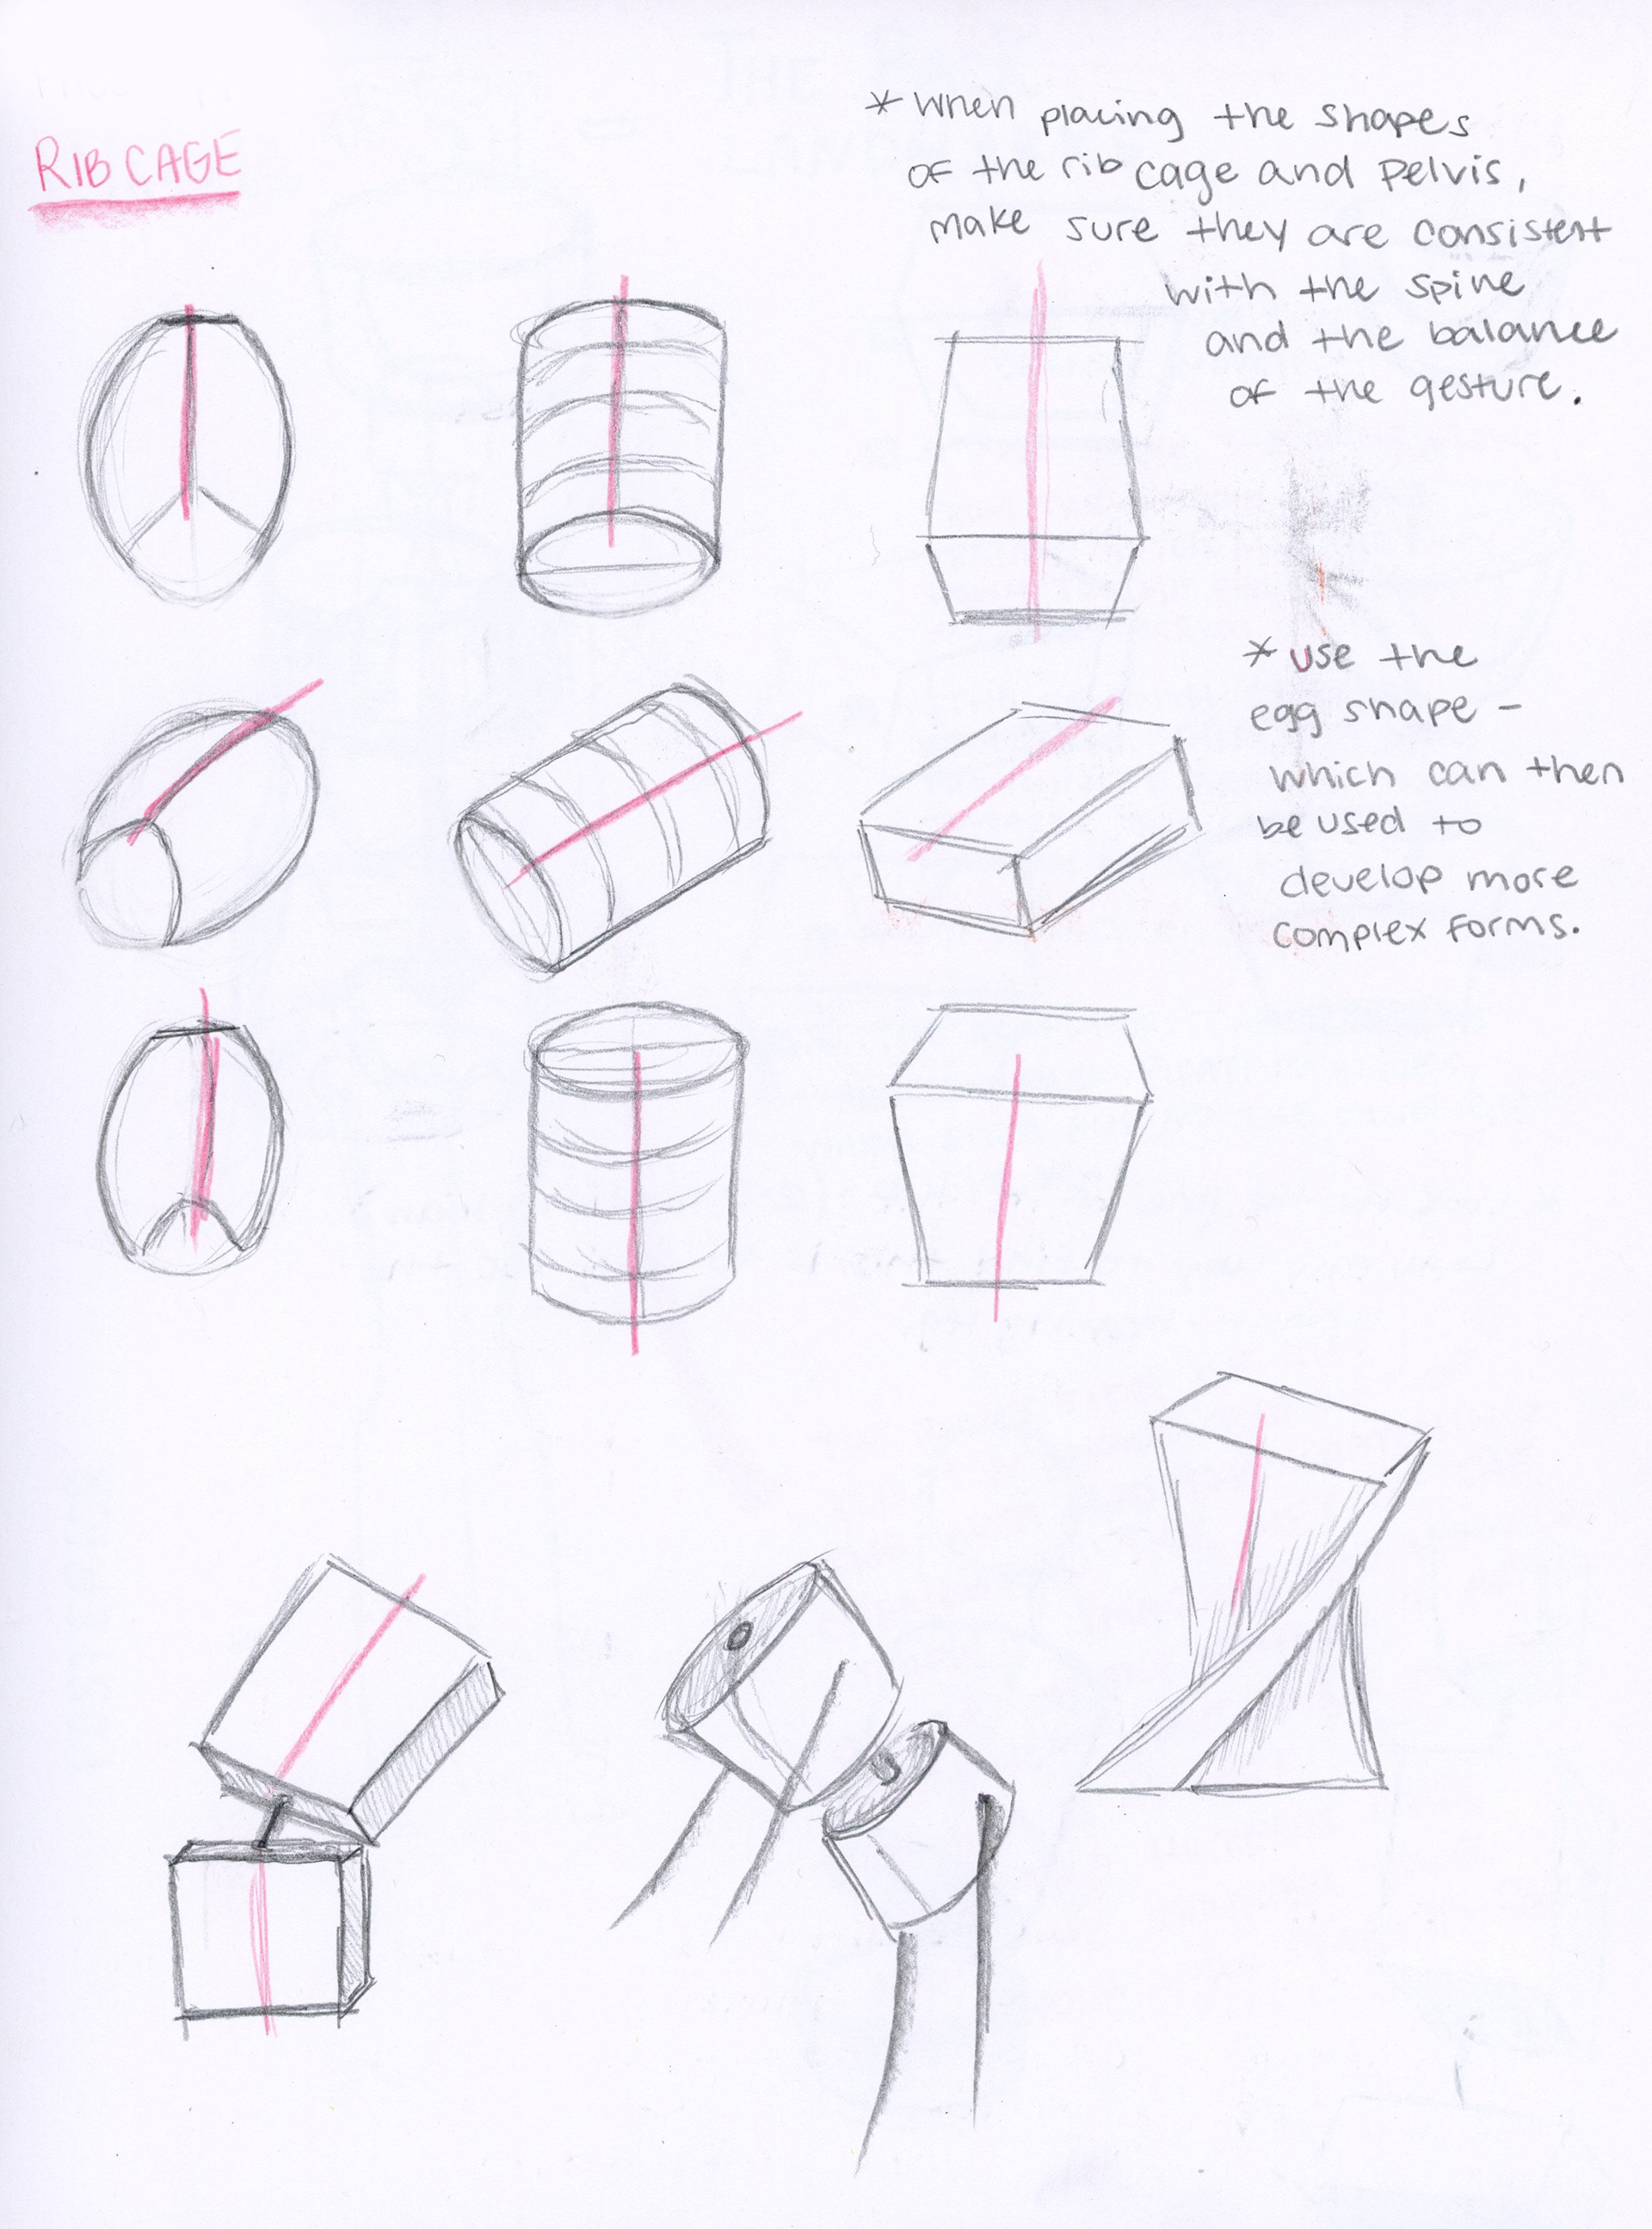 RIB CAGE
* when placing the shapes
of the rib cage and pelvis,
make sure they are consistent
with the spine
and the balance
of the gesture.
* use the
egg shape -
which can then
be used to
develop more
complex forms.